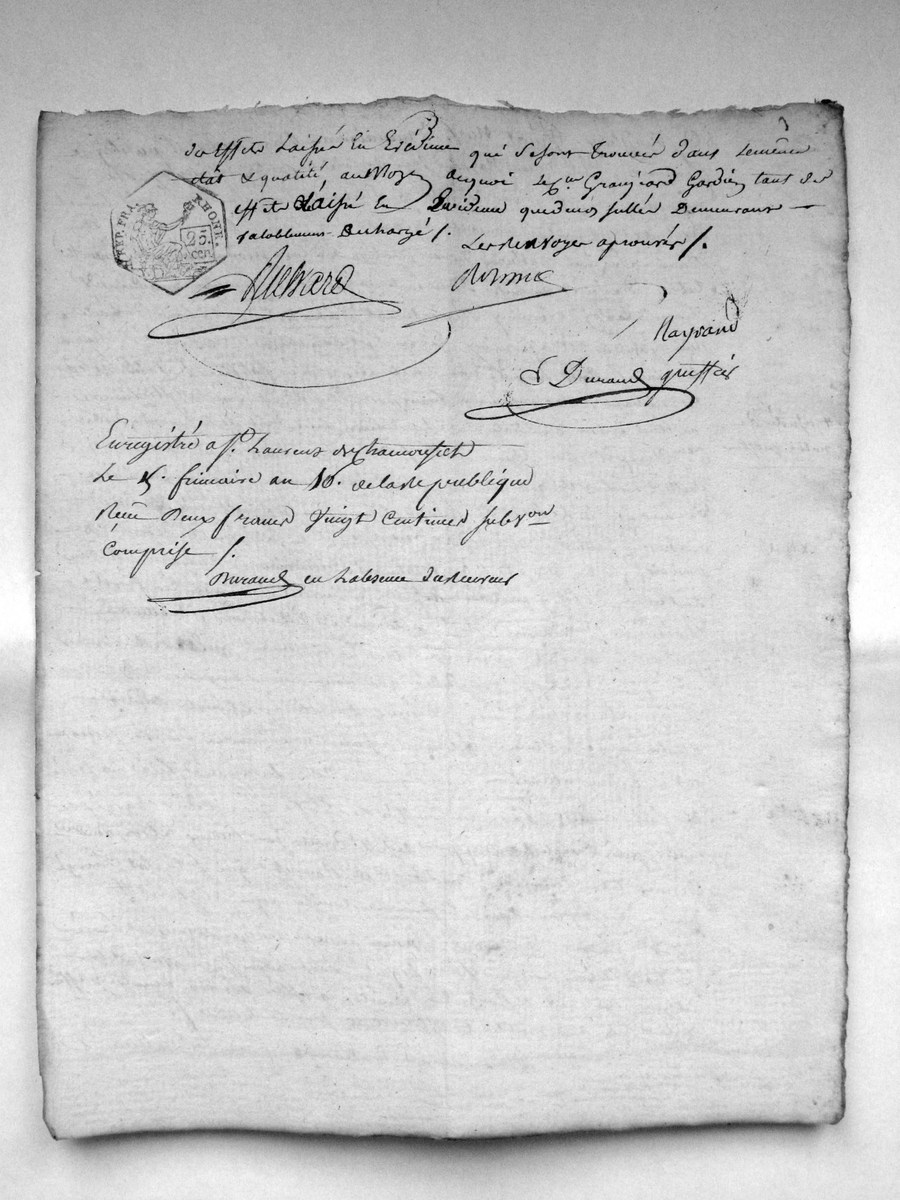 des Effets Laissé En Evidence qué Sesont Trouvés dans Lemême
état & qualité au Moyen dequoi Le Cen Granjard Gardien tant des
effets Laissé En Evidence que des Sellés Demeurons
Valablement Dechargé /.
Les Renvoyer aprouvés /.
REP. FRA.
RHONE.
25.
CEN
Raynard
Durand greffier
Enregistré a St. Laurens de Chamousset
Le 15. frimaire an 10. de la Republique
Reçu Deux francs Vingt Centimes subvon
Comprise /.
Durand en Labsence du Receveur